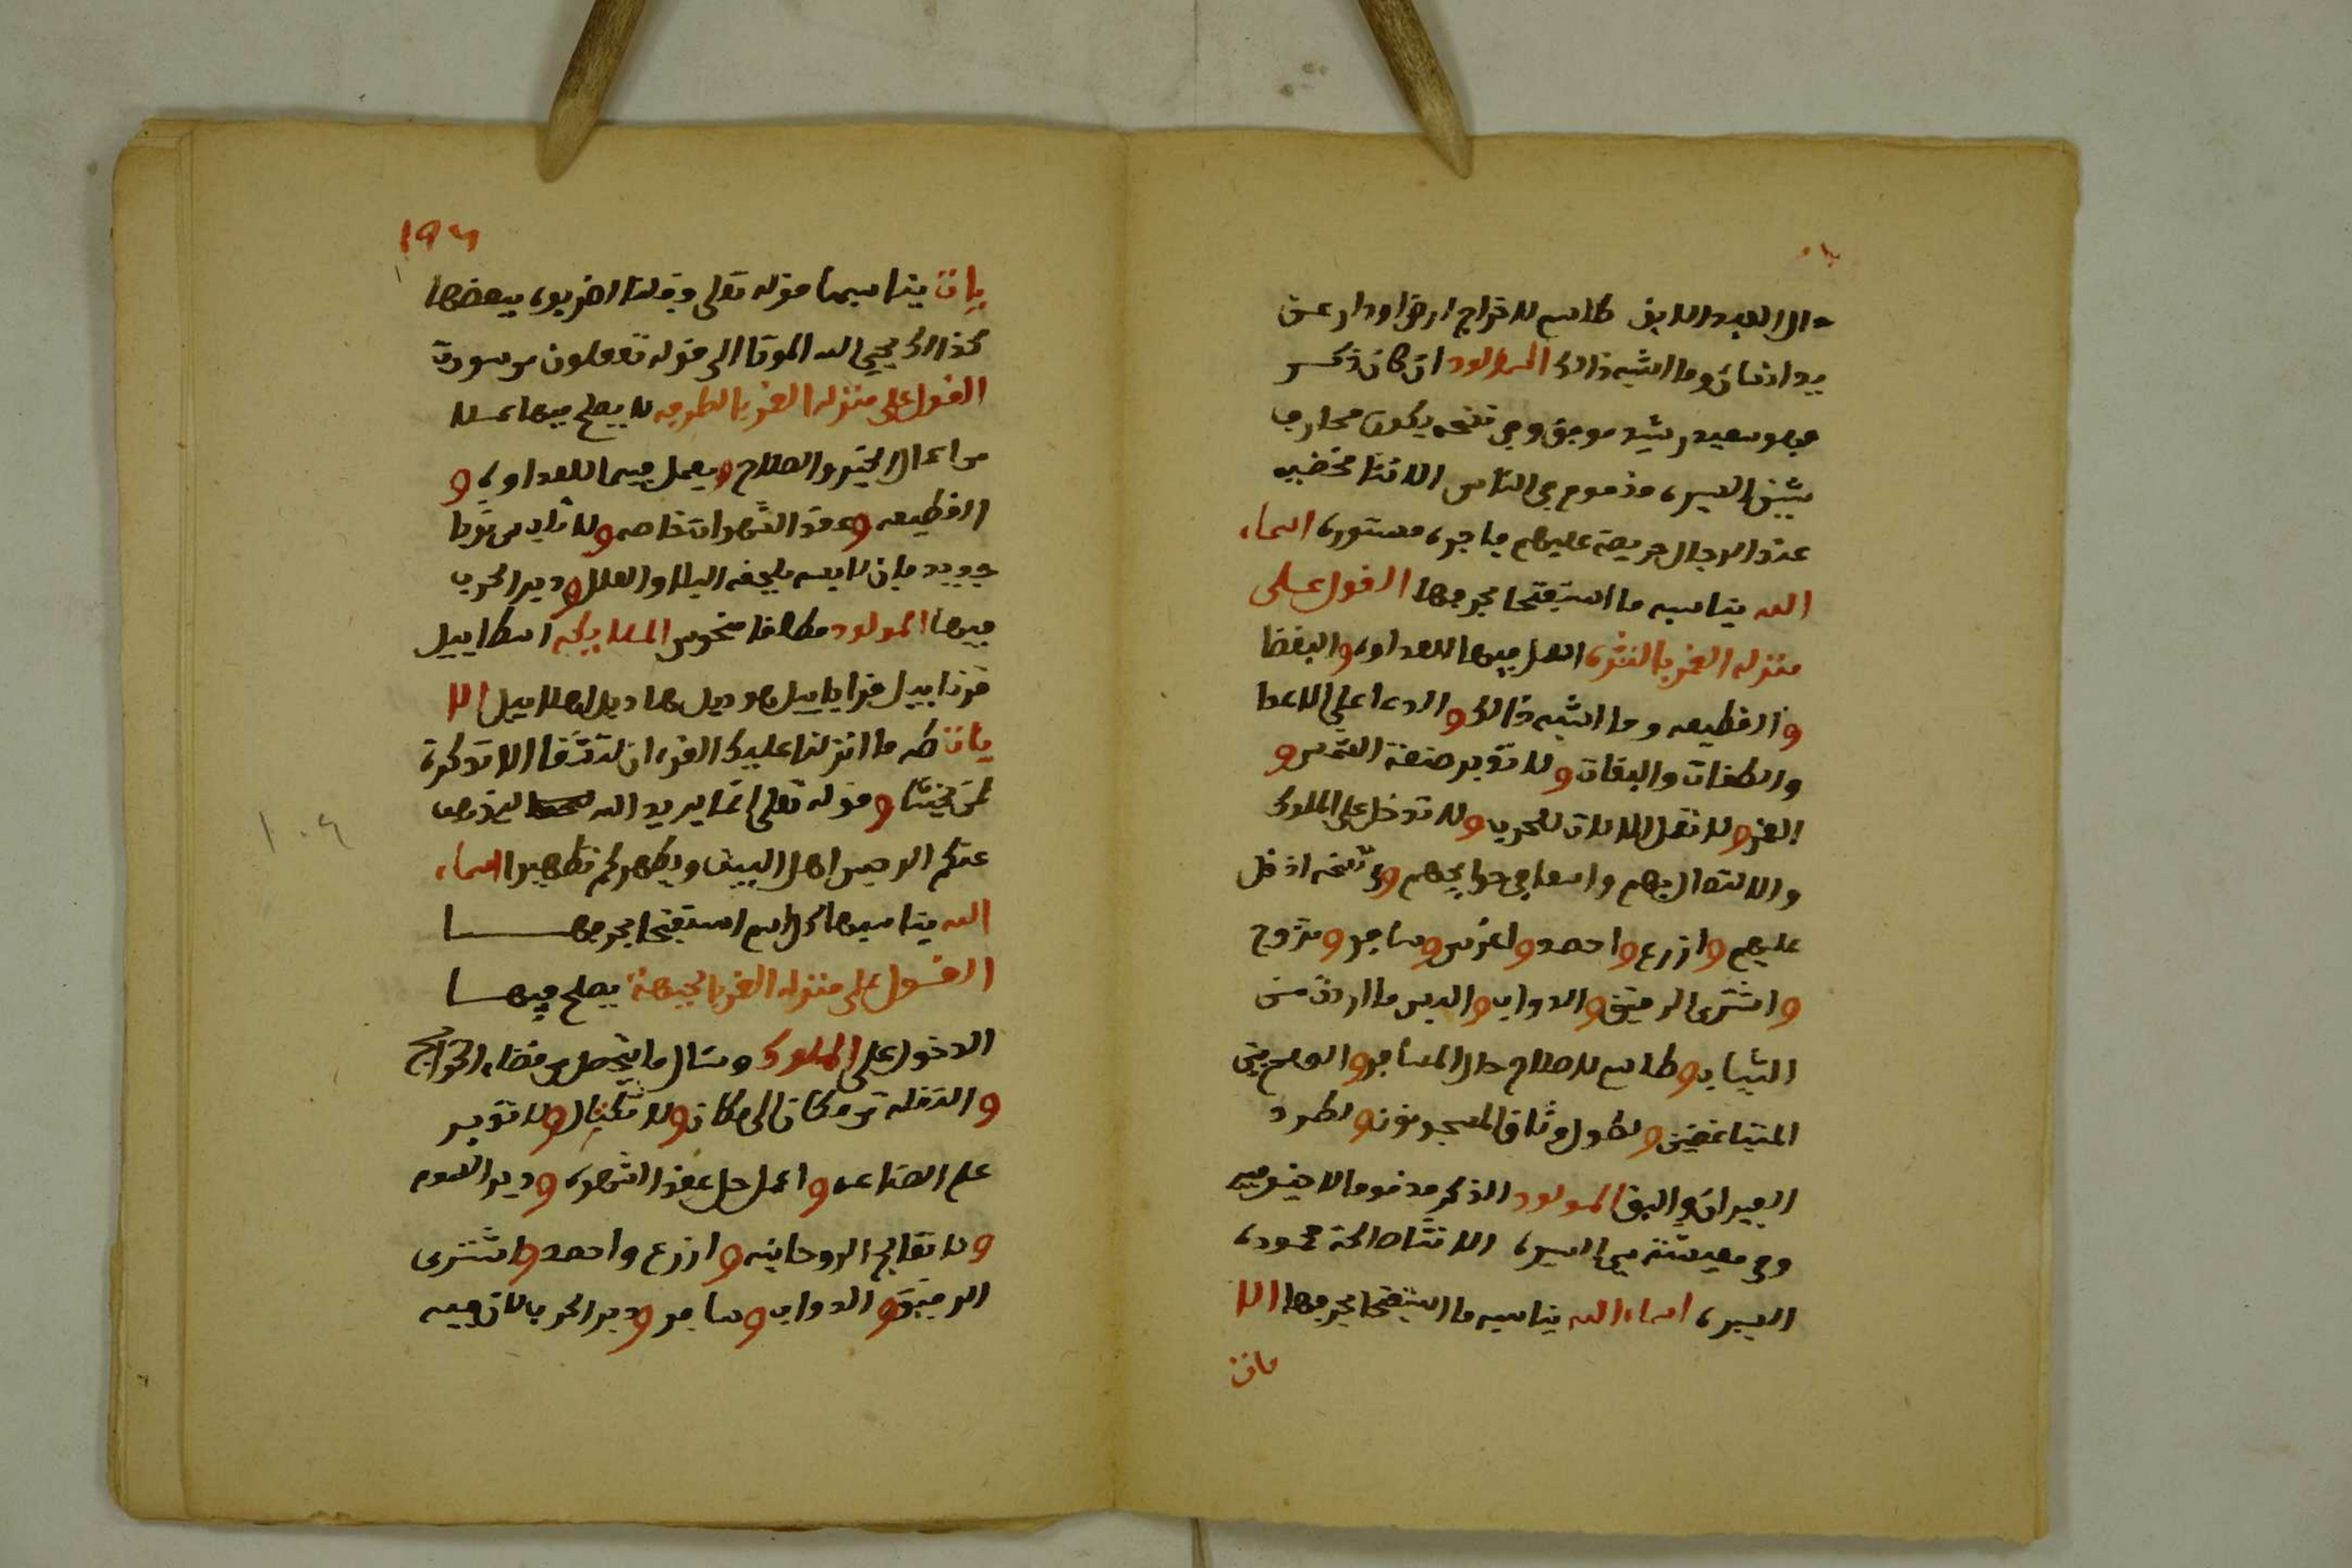 حال العبد الابق طلسم لاخراج ارض او دار عن
يد انسان وما اشبه ذالك المولود ان كان ذكر
فهو سعيد رشيد موفق وفي نسخه يكون محارف
شين السيره مذموم في الناس الانثا مخضبه
عند الرجال حريصة عليهم فاجره مستوره اسماء
الله يناسبه ما استفتحا بحرفها القول على
منزله القمر بالنثره اعمل فيها للعداوه والبغضا
والقطيعه وما اشبه ذالك والدعا على الاعدا
والطغات والبغات ولا تدبر صنعة الشمس و
القمر ولا تعمل الالات للحرب ولا تدخل على الملوك
والاتصال بهم واسعا في حوايجهم وفي نسخه ادخل
عليهم وازرع واحصد واغرس وسافر وتزوج
واشترى الرقيق والدواب والبس ما اردت من
الثياب وطلسم لاصلاح حال المسافر والوحوش
المتباغضين ولطول وثاق المسجونون ولطرد
الفيران والبق المولود الذكر مذموما لاخير فيه
وفي معيشته سي السيره الانثا صالحة محموده
السيره اسماء الله يناسبه ما استفتحا بحرفها الا
يات
١٩٦
يات يناسبها قوله تعلى وقلنا اضربوه ببعضها
كذالك يحيي الله الموتا الى قوله تعقلون من سورة
القول على منزله القمر بالطرفه لا يصلح فيها عملا
من اعمال الخير والصلاح ويعمل فيها للعداوه و
القطيعه وعقد الشهوات خاصه ولا تلبس ثوبا
جديد فان لابسه يلحقه البلا والعلل ودير الحرب
فيها المولود مطلقا منحوس الملايكه اسطاييل
قرناييل قراياييل هوديل هاديل اهلاييل الا
يات طه ما انزلنا عليك القرءان لتشقا الا تذكرة
لمن يخشا وقوله تعلى انما يريد الله ليذهب
عنكم الرجس اهل البيت ويطهركم تطهيرا اسماء
١٠٦
الله يناسبها كل اسم استفتحا بحرفها
القول على منزله القمر بالجبهة يصلح فيها
الدخول على الملوك وتنال ما يتحصل من قضاء الحوايج
والنقله من مكان الى مكان ولا تكتال ولا تدبر
علم الصناعه واعمل حل عقد الشهوه ودير السموم
ولا تعالج الروحانيه وازرع واحصد واشترى
الرقيق والدواب وسافر ودير الحرب بالان فيه